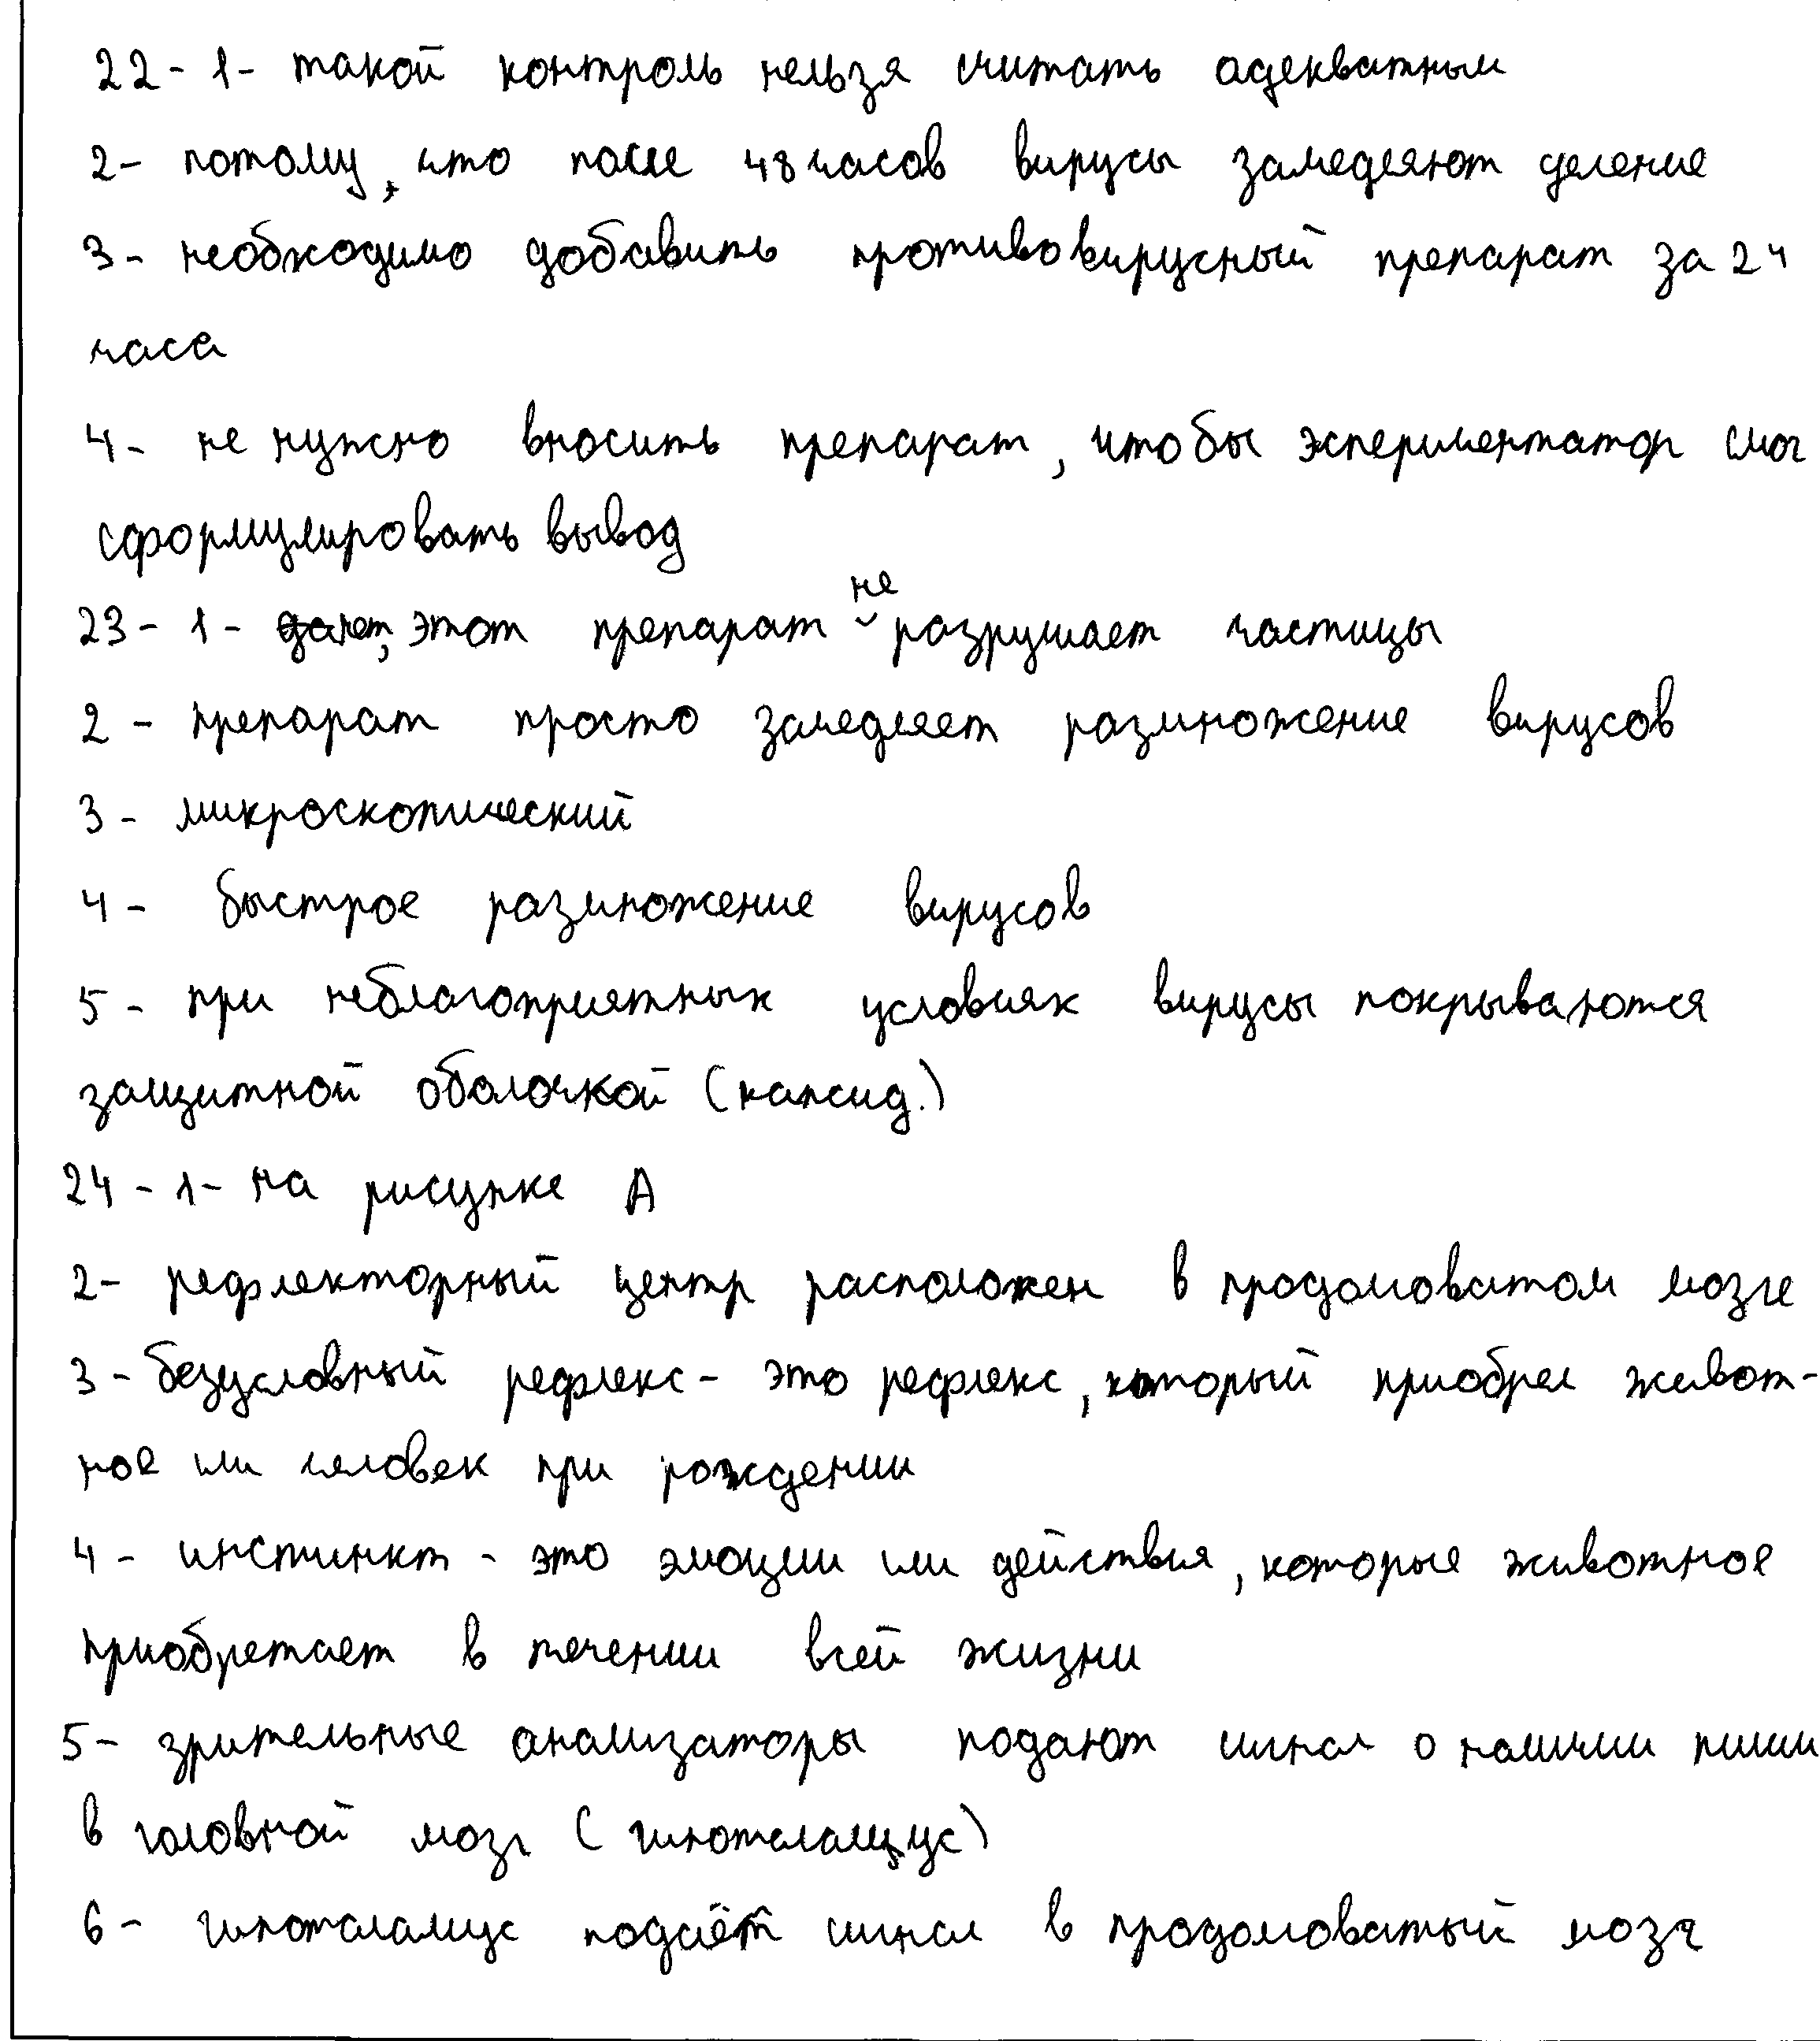 22 - 1 - такой контроль нельзя считать адекватным
2 - потому, что после 48 часов вирусы замедляют деление
3 - необходимо добавить противовирусный препарат за 24
часа
4 - не нужно вносить препарат, чтобы эспериментатор смог
сформулировать вывод
23 - 1 - этот препарат не разрушает частицы
2 - препарат просто замедляет размножение вирусов
3 - микроскопический
4 - быстрое размножение вирусов
5 - при неблагоприятных условиях вирусы покрываются
защитной оболочкой (капсид.)
24 - 1 - на рисунке А
2 - рефлекторный центр расположен в продолговатом мозге
3 - безусловный рефлекс - это рефлекс, который приобрел живот-
ное или человек при рождении
4 - инстинкт - это эмоции или действия, которые животное
приобретает в течении всей жизни
5 - зрительные анализаторы подают сигнал о наличии пищи
в головной мозг (гипоталамус)
6 - гипоталамус подаёт сигнал в продолговатый мозг